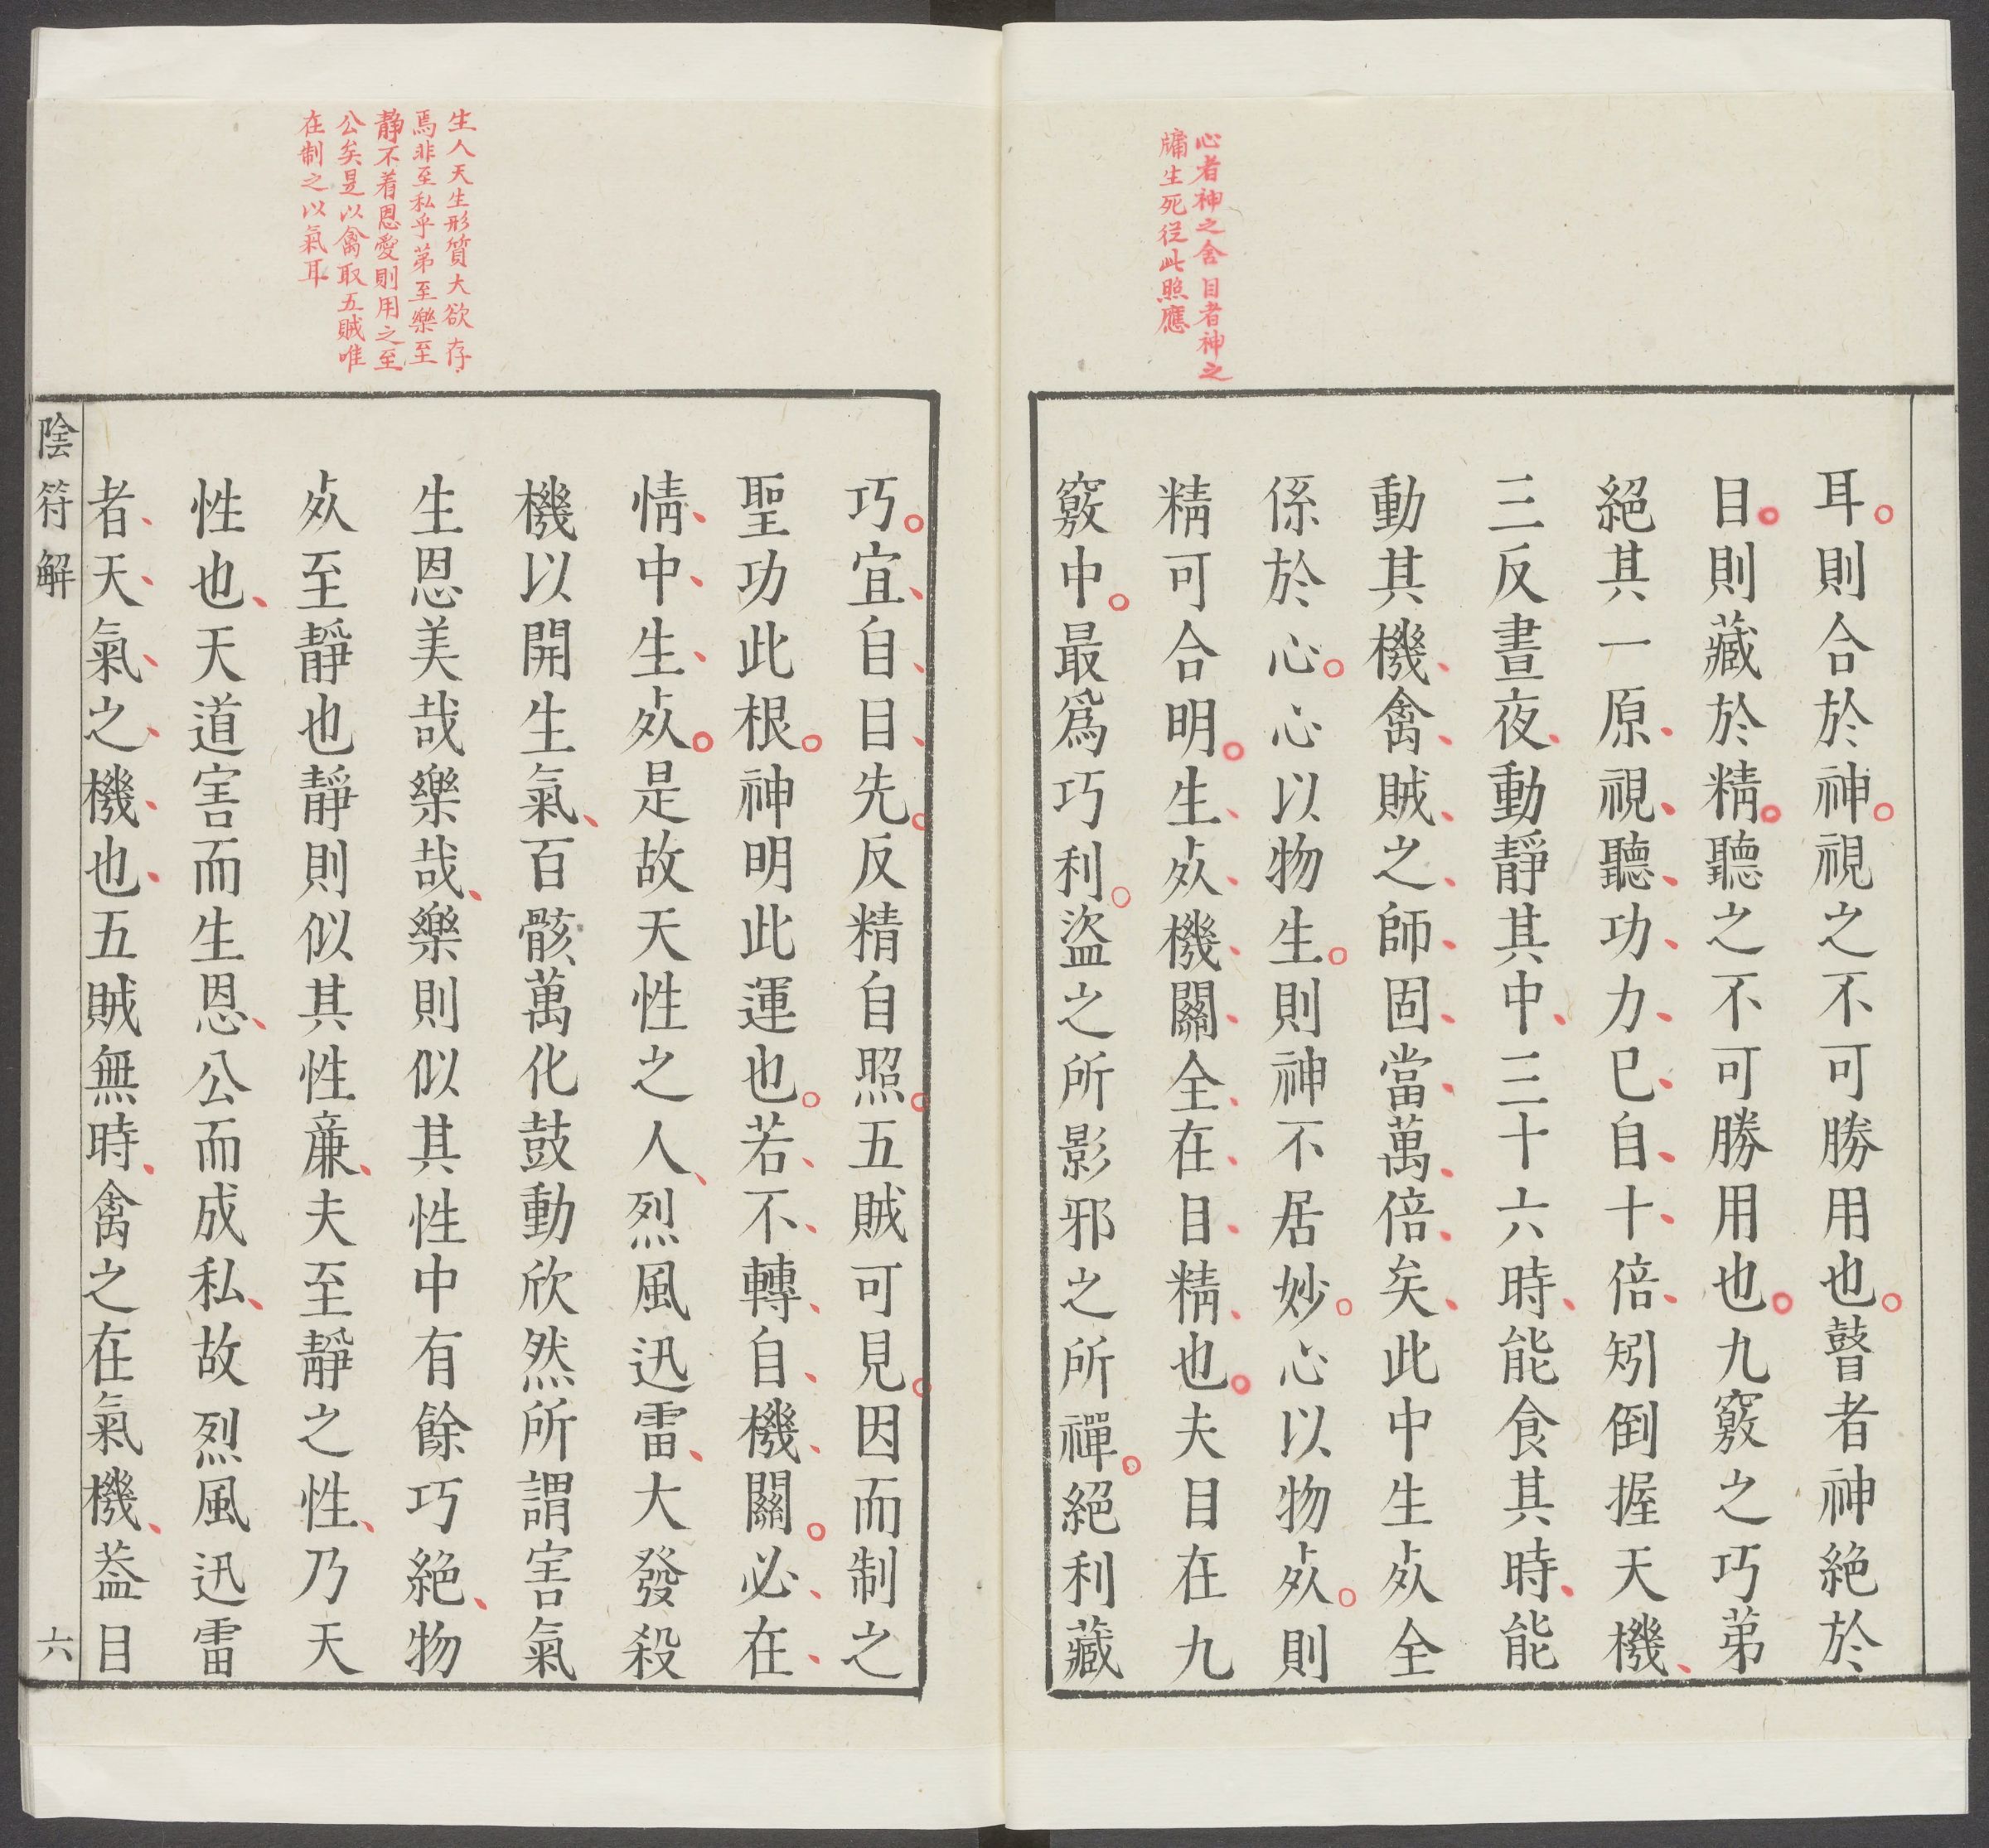 心者神之舍目者神之
牖生死從此照應
耳則合於神視之不可勝用也瞽者神絕於
目則藏於精聽之不可勝用也九竅之巧苐
絕其一原視聽功力已自十倍矧倒握天機
三反晝夜動靜其中三十六時能食其時能
動其機禽賊之師固當萬倍矣此中生㱔全
係於心心以物生則神不居妙心以物㱔則
精可合明生㱔機關全在目精也夫目在九
竅中最爲巧利盜之所影邪之所禪絕利藏
生人天生形質大欲存
焉非至私乎苐至樂至
静不着恩愛則用之至
公矣是以禽取五賊唯
在制之以氣耳
巧宜自目先反精自照五賊可見因而制之
聖功此根神明此運也若不轉自機關必在
情中生㱔是故天性之人烈風迅雷大發殺
機以開生氣百骸萬化鼓動欣然所謂害氣
生恩美哉樂哉樂則似其性中有餘巧絕物
㱔至靜也靜則似其性亷夫至靜之性乃天
性也天道害而生恩公而成私故烈風迅雷
者天氣之機也五賊無時禽之在氣機葢目
陰符解
六